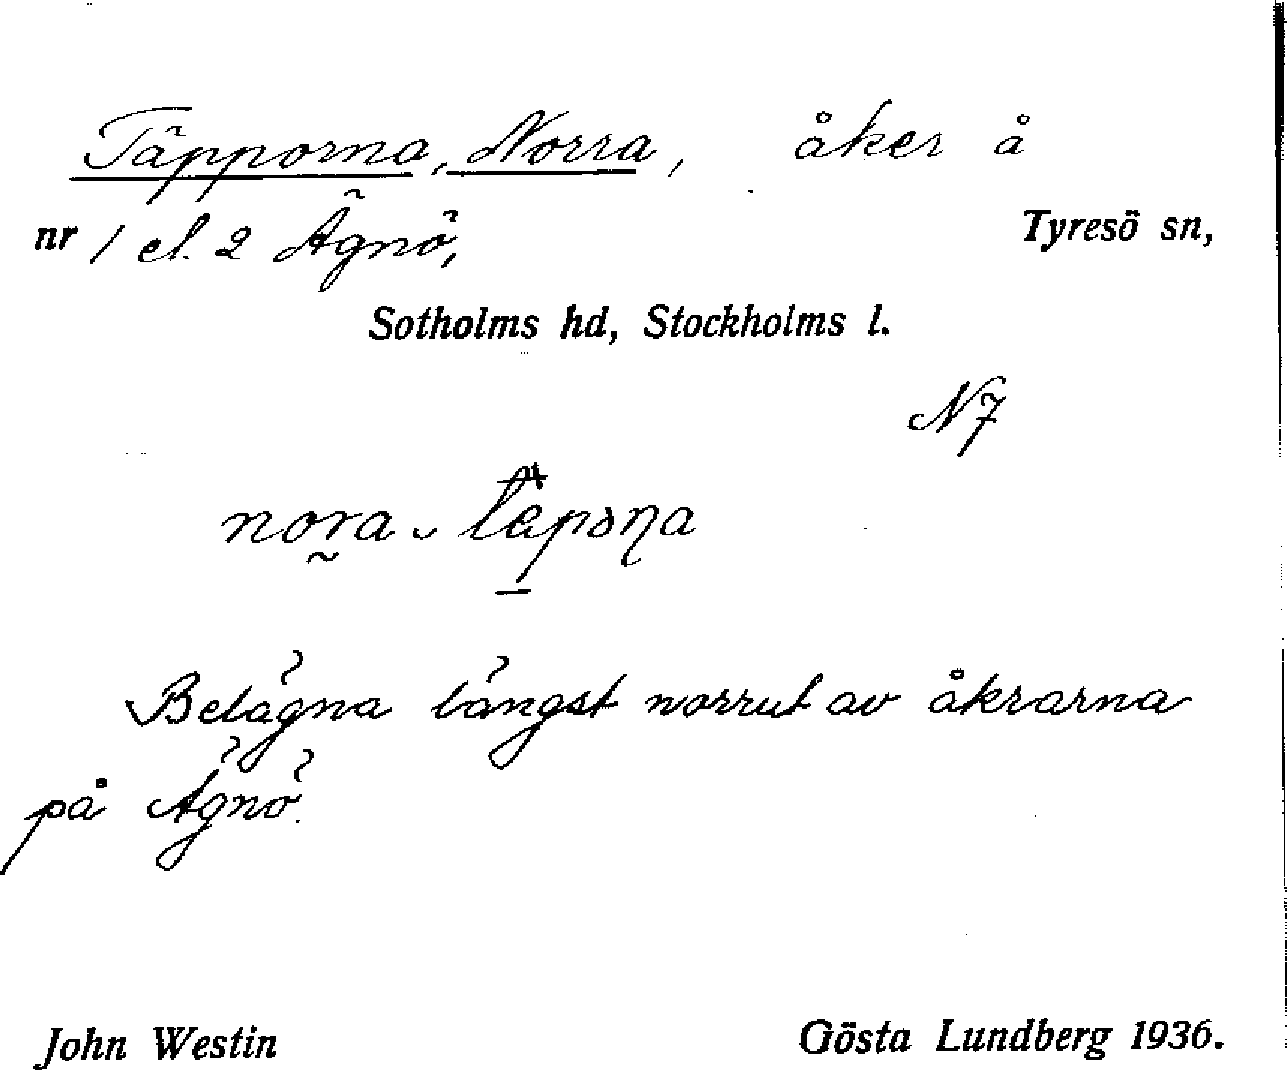 Täpporna, Norra, åker å
nr 1 el. 2 Ägnö, Tyresö sn,
Sotholms hd, Stockholms l.
N7
Belägna längst norrut av åkrarna
på Ägnö.
John Westin Gösta Lundberg 1936.